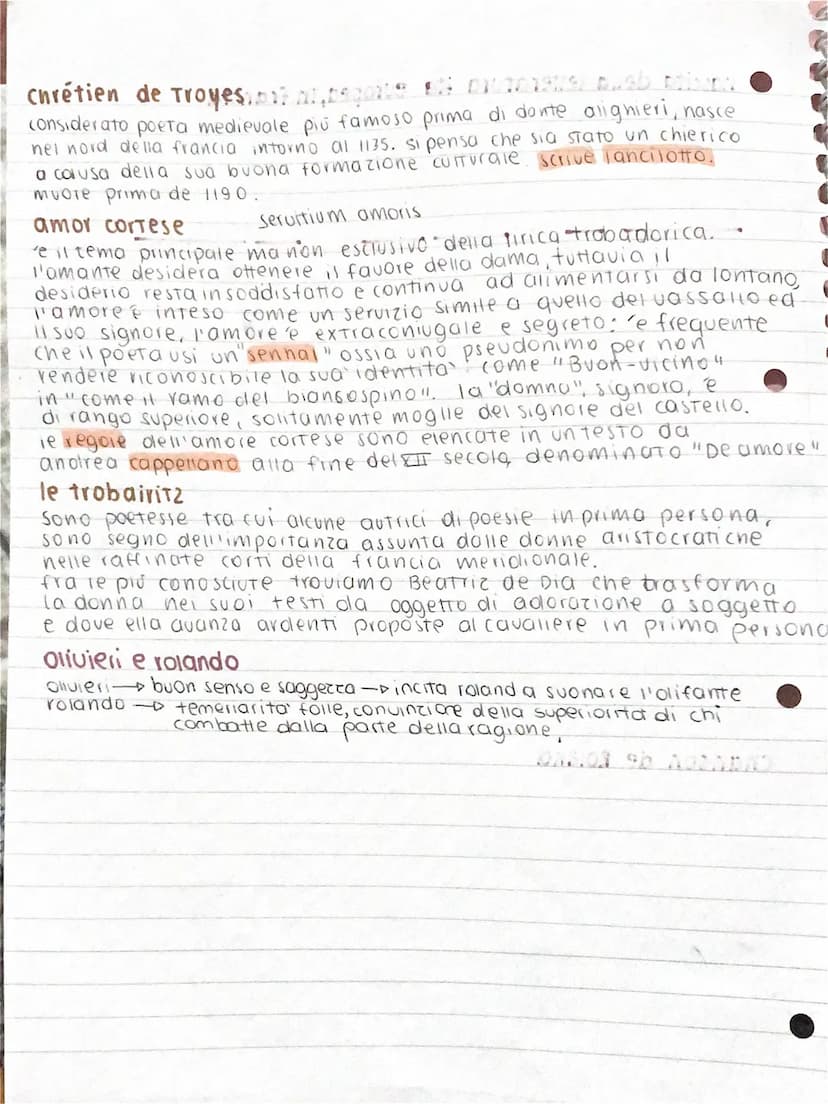 chrétien de Troyes.
considerato poeta medievale più famoso prima di dante alighieri, nasce
nel nord della francia intorno al 1135. si pensa che sia stato un chierico
a causa della sua buona formazione culturale. scrive lancilotto.
muore prima de 1190.
amor cortese servitium amoris
'e il tema principale ma non esclusivo della lirica trobadorica.
l'amante desidera ottenere il favore della dama, tuttavia il
desiderio resta insoddisfatto e continua ad alimentarsi da lontano,
l'amore è inteso come un servizio simile a quello del vassallo ed
il suo signore, l'amore 'e extraconiugale e segreto: 'e frequente
che il poeta usi un "senhal" ossia uno pseudonimo per non
rendere riconoscibile la sua identità come "Buon-vicino"
in "come il ramo del biancospino". la "domna", signora, 'e
di rango superiore, solitamente moglie del signore del castello.
le regole dell'amore cortese sono elencate in un testo da
andrea cappellano alla fine del XII secolo, denominato "De amore"
le trobairitz
sono poetesse tra cui alcune autrici di poesie in prima persona,
sono segno dell'importanza assunta dalle donne aristocratiche
nelle raffinate corti della francia meridionale.
fra le più conosciute troviamo Beatriz de Dia che trasforma
la donna nei suoi testi da oggetto di adorazione a soggetto
e dove ella avanza ardenti proposte al cavaliere in prima persona
olivieri e rolando
olivieri → buon senso e saggezza → incita roland a suonare l'olifante
rolando → temerarità folle, convinzione della superiorità di chi
combatte dalla parte della ragione.